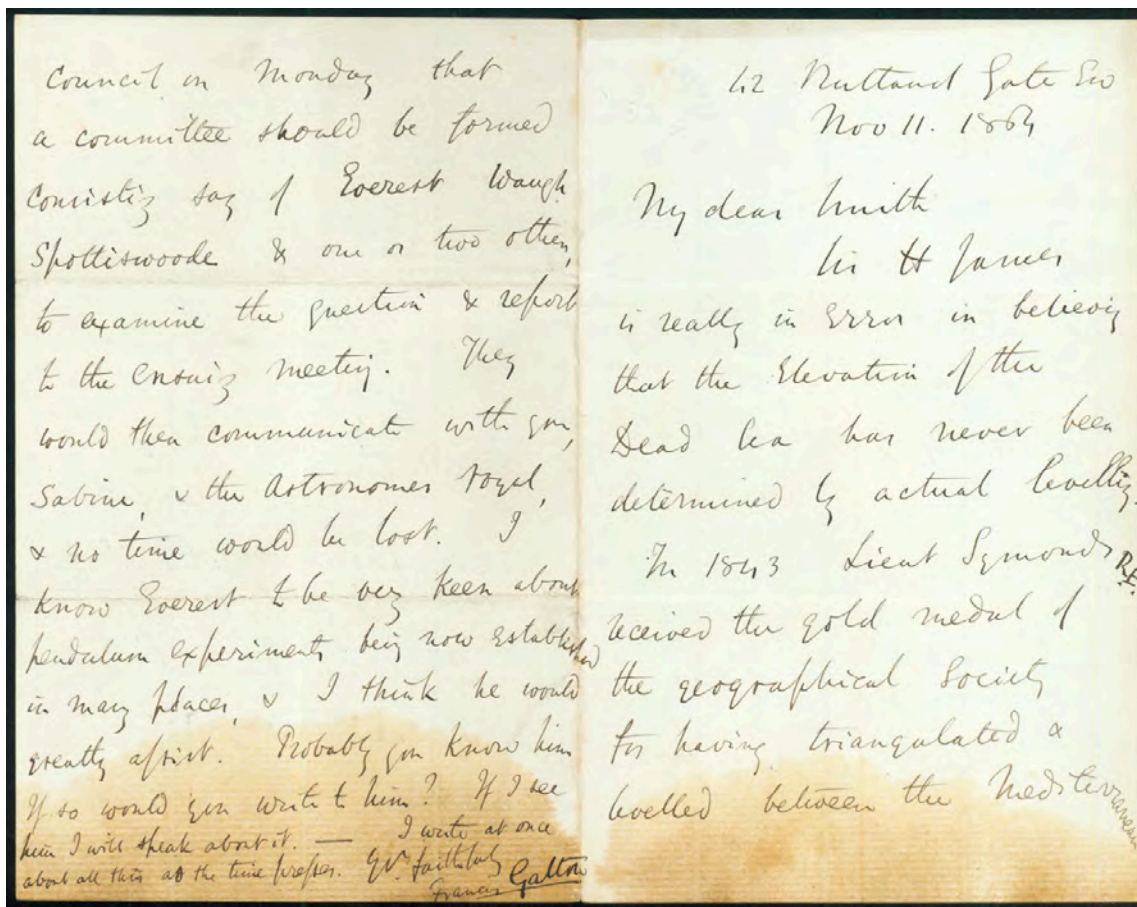 Council on Monday that
a committee should be formed
consisting say of Everest Waugh
Spottiswoode & one or two others,
to examine the question & report
to the ensuing meeting. They
would then communicate with you,
Sabine, & the Astronomer Royal,
& no time would be lost. I
know Everest to be very keen about
pendulum experiments being now established
in many places, & I think he would
greatly assist. Probably you know him
If so would you write to him? If I see
him I will speak about it. — I write at once
about all this as the time presses. Yrs. faithfully
Francis Galton
42 Rutland Gate SW
Nov 11. 1864
My dear Smith
Sir H James
is really in Error in believing
that the Elevation of the
Dead Sea has never been
determined by actual levelling.
In 1843 Lieut Symonds R.E.
received the gold medal of
the geographical Society
for having triangulated &
levelled between the Mediterranean